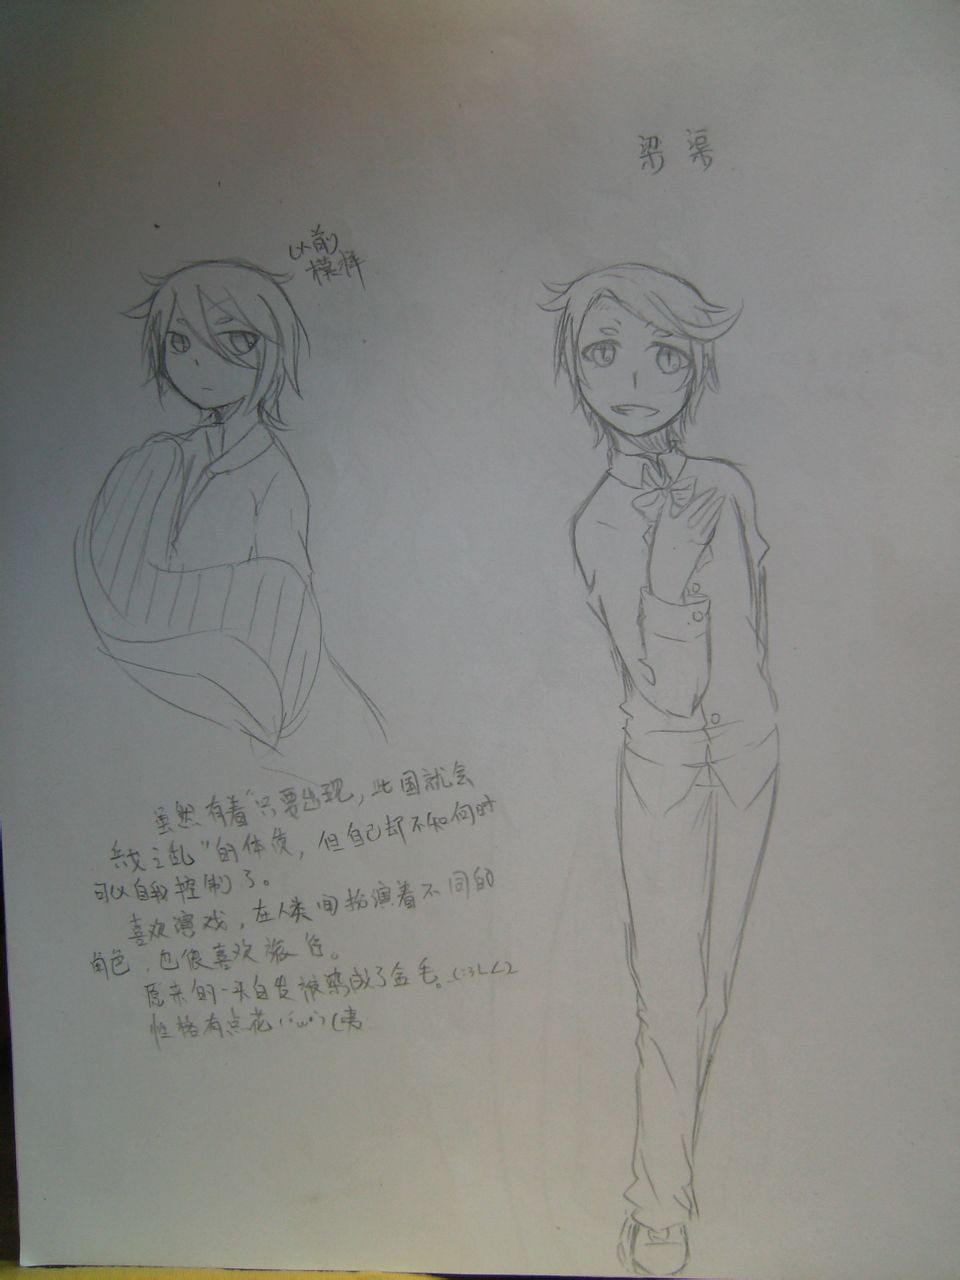 梁渠
以前
模样
虽然有着“只要出现，此国就会
兵戈之乱”的体质，但自己却不知何时
可以自我控制了。
喜欢演戏，在人类间扮演着不同的
角色，也很喜欢派
原来的一头白发被染成了金毛。_(:3」∠)_
性格有点花(´ω`)(咦